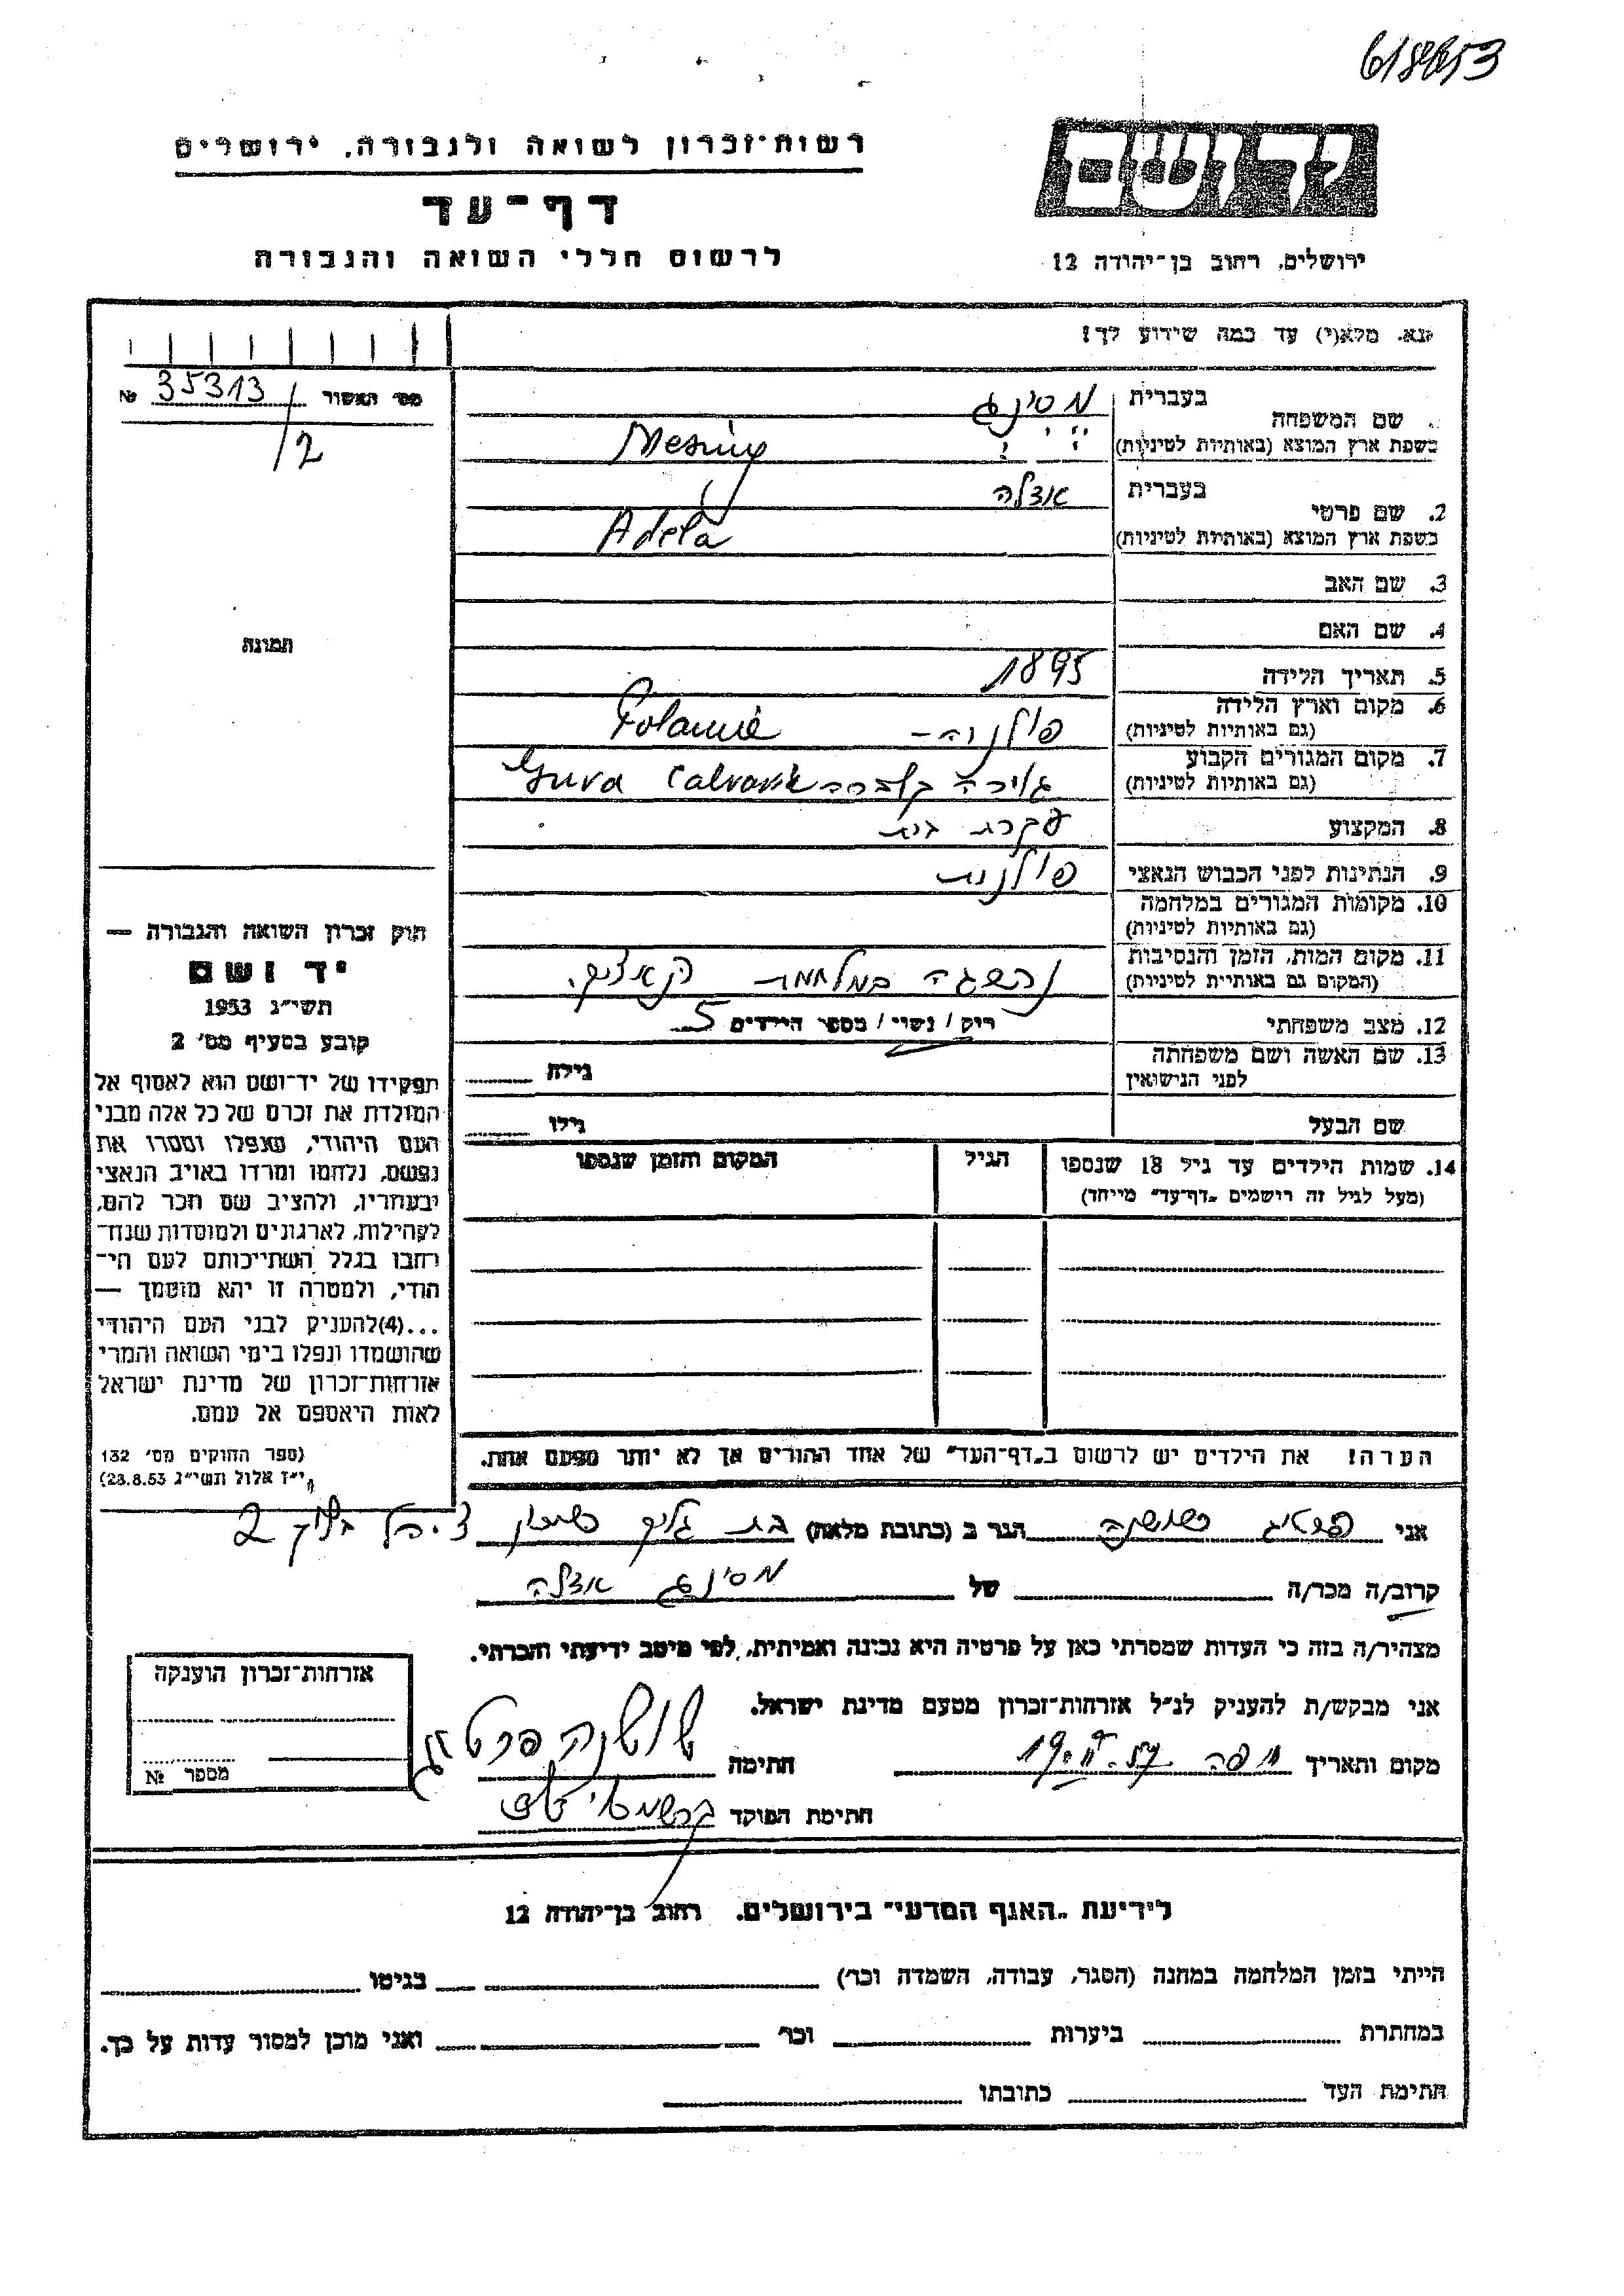 רשות־זכרון לשואה ולגבורה, ירושלים
דף־עד
לרשום חללי השואה והגבורה
ירושלים, רחוב בן־יהודה 12
נא. מלא(י) עד כמה שידוע לך!
מס׳ האשור 35313 №
/2
בעברית
שם המשפחה
בשפת ארץ המוצא (באותיות לטיניות) Mesing
בעברית
2. שם פרטי
בשפת ארץ המוצא (באותיות לטיניות) Adela
3. שם האב
4. שם האם
5. תאריך הלידה 1895
6. מקום וארץ הלידה
(גם באותיות לטיניות)
7. מקום המגורים הקבוע
(גם באותיות לטיניות) Calvaria
8. המקצוע עקרת בית
9. הנתינות לפני הכבוש הנאצי פולנית
10. מקומות המגורים במלחמה
(גם באותיות לטיניות)
11. מקום המות, הזמן והנסיבות
(המקום גם באותיות לטיניות) במלחמת
12. מצב משפחתי רווק / נשוי / מספר הילדים 5
13. שם האשה ושם משפחתה
לפני הנישואין גילה
שם הבעל גילו
14. שמות הילדים עד גיל 18 שנספו הגיל המקום והזמן שנספו
(מעל לגיל זה רושמים „דף־עד” מיוחד)
הערה! את הילדים יש לרשום ב„דף־העד” של אחד ההורים אך לא יותר מפעם אחת.
תמונה
חוק זכרון השואה והגבורה —
יד ושם
תשי״ג 1953
קובע בסעיף מס׳ 2
תפקידו של יד־ושם הוא לאסוף אל
המולדת את זכרם של כל אלה מבני
העם היהודי, שנפלו ומסרו את
נפשם, נלחמו ומרדו באויב הנאצי
ובעוזריו, ולהציב שם וזכר להם,
לקהילות, לארגונים ולמוסדות שנח־
רבו בגלל השתייכותם לעם הי־
הודי, ולמטרה זו יהא מוסמך —
...(4)להעניק לבני העם היהודי
שהושמדו ונפלו בימי השואה והמרי
אזרחות־זכרון של מדינת ישראל
לאות היאספם אל עמם.
(ספר החוקים מס׳ 132
י״ז אלול תשי״ג 23.8.53)
אני שושנה הגר ב (כתובת מלאה) בת גלים
קרוב/ה מכר/ה של מסינג אדלה
מצהיר/ה בזה כי העדות שמסרתי כאן על פרטיה היא נכונה ואמיתית, לפי מיטב ידיעתי והכרתי.
אני מבקש/ת להעניק לנ״ל אזרחות־זכרון מטעם מדינת ישראל.
מקום ותאריך חיפה חתימה שושנה
חתימת הפוקד
אזרחות־זכרון הוענקה
מספר №
לידיעת „האגף המדעי” בירושלים, רחוב בן־יהודה 12
הייתי בזמן המלחמה במחנה (הסגר, עבודה, השמדה וכו׳) בגיטו
במחתרת ביערות וכו׳ ואני מוכן למסור עדות על כך.
חתימת העד כתובתו